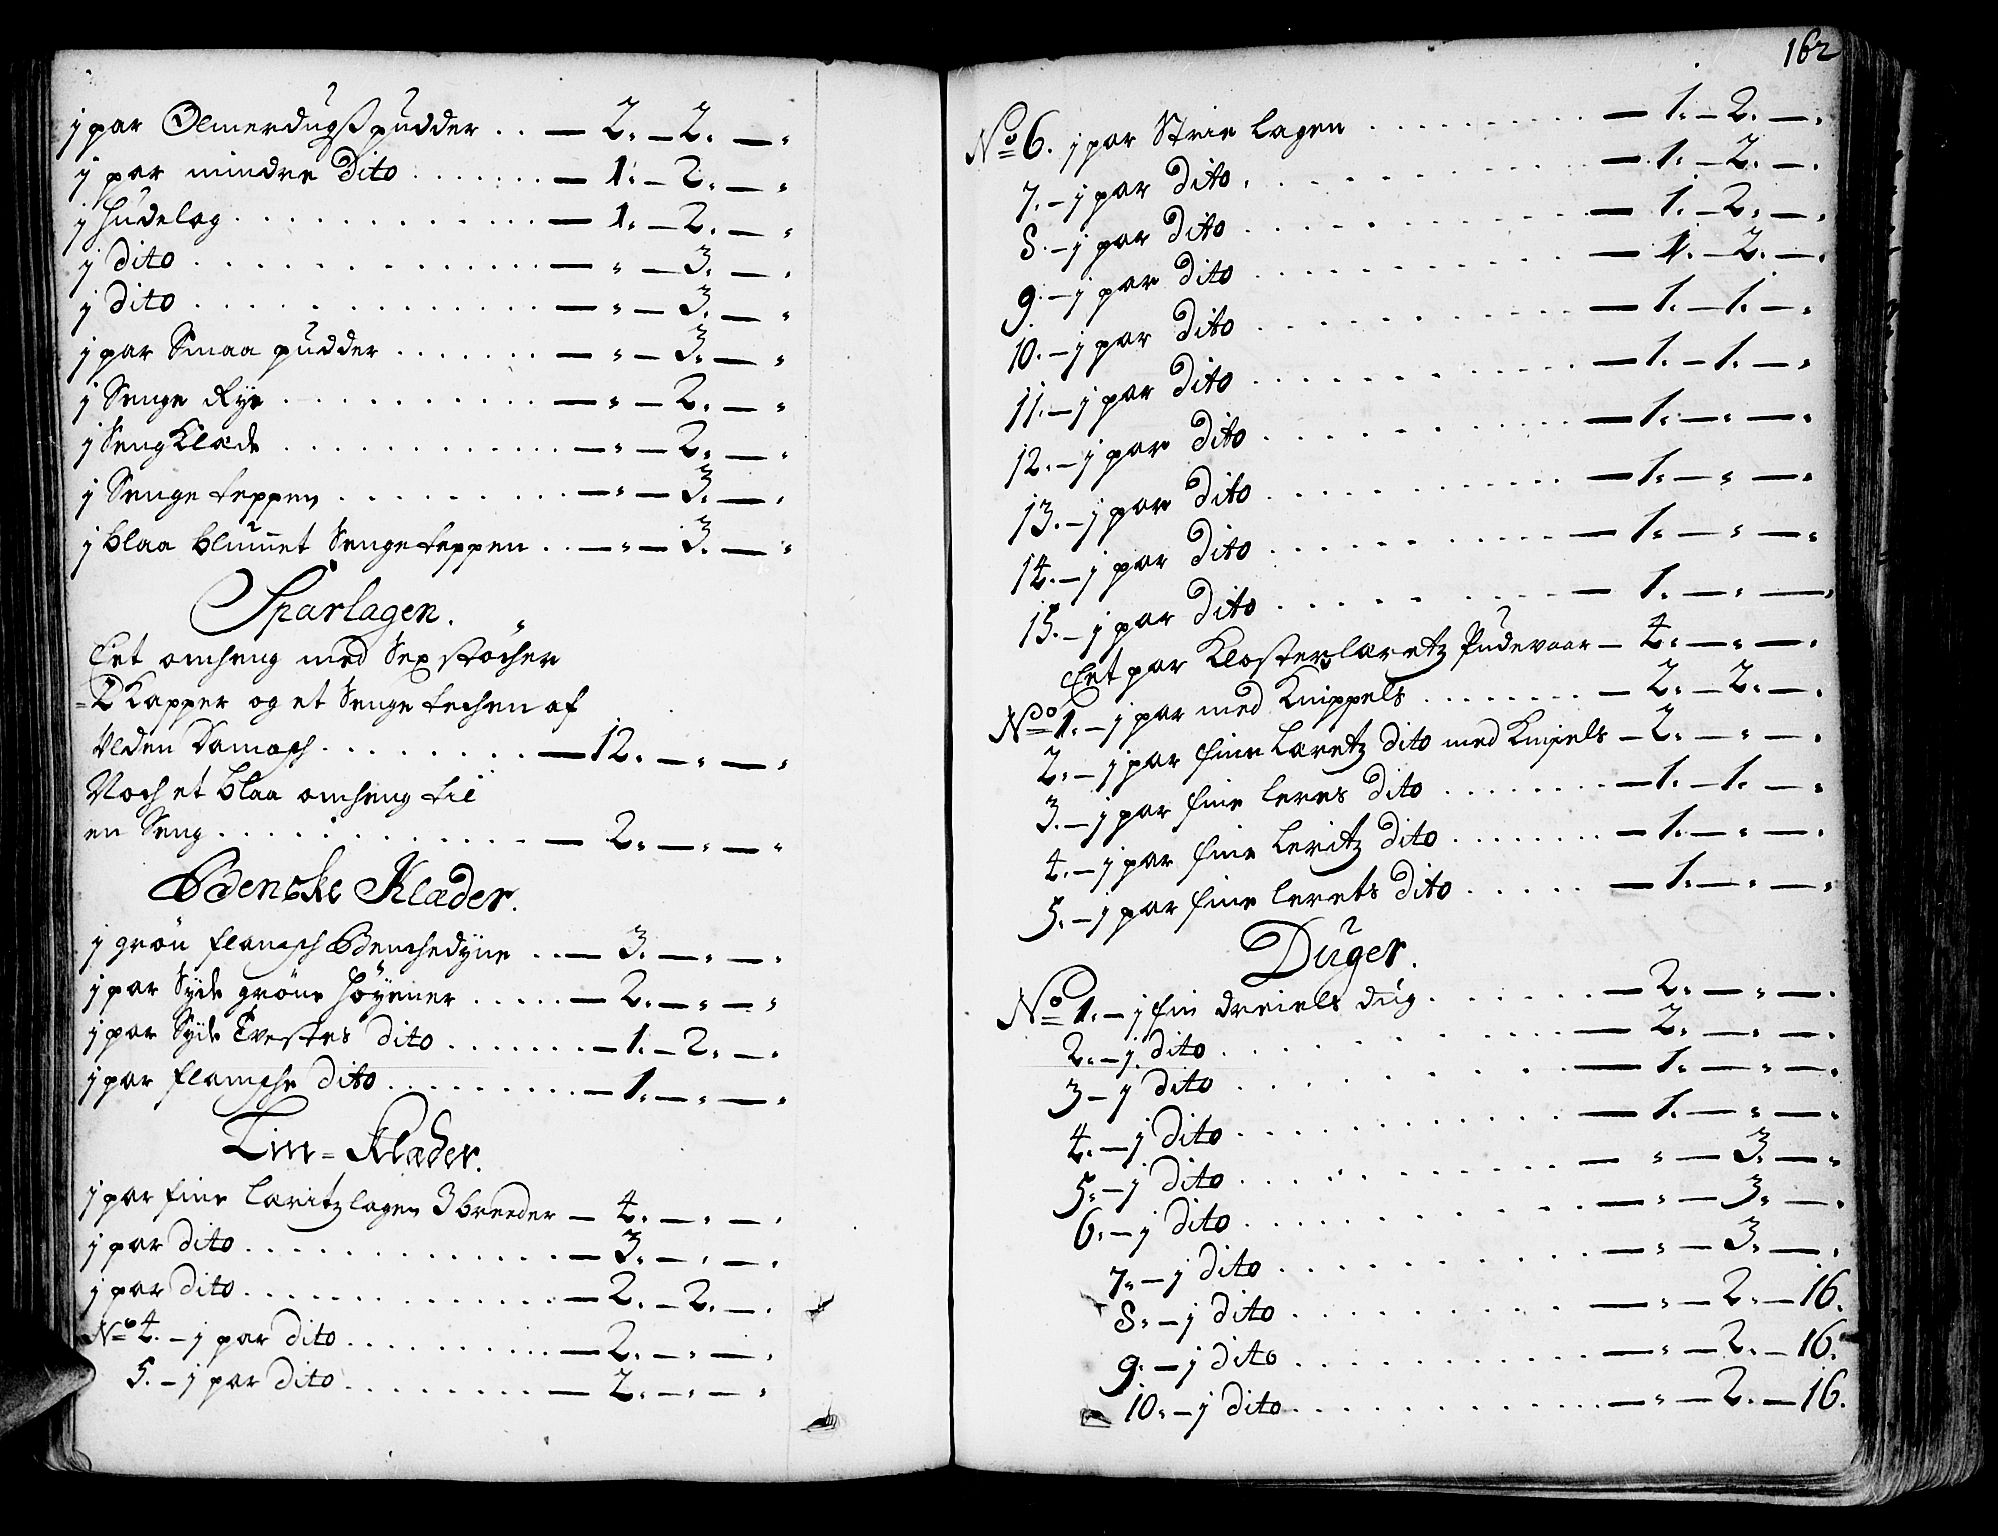 j par Olmerdugs pudder . . — 2. — 2. — "
j par mindre Dito . . . . . . . — 1. — 2. — "
j hudelag . . . . . . . . . . . . — 1. — 2. — "
j Dito . . . . . . . . . . . . . . — " — 3. — "
j Dito . . . . . . . . . . . . . . — " — 3. — "
j par Smaa pudder . . . . . . . — " — 3. — "
j Senge Rye . . . . . . . . . . . — " — 2. — "
j Seng Klæde . . . . . . . . . . . — " — 2. — "
j Senge teppen . . . . . . . . . — " — 3. — "
j blaa blumet Senge teppen . . — " — 3. — "
Sparlagen.
Eet omheng med Sex støcher
2 Kapper og et Senge techen af
Ulden Damasch . . . . . . . . . — 12. — " — "
Noch et blaa omheng til
en Seng . . . . . . . . . . . . . — 2. — " — "
Bencke Klæder.
j grøn flamsch Benchedyne . . — 3. — " — "
j par Syde grøne Høyener . . . . . — 2. — " — "
j par Syde Tvestes Dito . . . . . . . — 1. — 2. — "
j par flamsche Dito . . . . . . . . . — 1. — " — "
Lin = Klæder.
j par fine Laritz lagen 3 breeder — 4. — " — "
j par Dito . . . . . . . . . . . . . — 3. — " — "
j par Dito . . . . . . . . . . . . . — 2. — 2. — "
No 4. — j par Dito . . . . . . . . . — 2. — " — "
5. — j par Dito . . . . . . . . . — 2. — " — "
162
No 6. j par Strie Lagen . . . . . . . . . — 1. — 2. — "
7. — j par Dito . . . . . . . . . . — 1. — 2. — "
8. — j par Dito . . . . . . . . . . — 1. — 2. — "
9. — j par Dito . . . . . . . . . . — 1. — 2. — "
10. — j par Dito . . . . . . . . . . — 1. — 1. — "
11. — j par Dito . . . . . . . . . . — 1. — 1. — "
12. — j par Dito . . . . . . . . . . — 1. — " — "
13. — j par Dito . . . . . . . . . . — 1. — " — "
14. — j par Dito . . . . . . . . . . — 1. — " — "
15. — j par Dito . . . . . . . . . . — 1. — " — "
Eet par Klosterlæretz Pudevaar — 4. — " — "
No 1. — j par med Knippels . . . . . . . . — 2. — 2. — "
2. — j par fine Læretz Dito med Knipels — 2. — " — "
3. — j par fine leres Dito . . . . . . . — 1. — 1. — "
4. — j par fine Leritz Dito . . . . . . . — 1. — " — "
5. — j par fine lerets Dito . . . . . . — 1. — " — "
Duger.
No 1. — j fin Dreiels Dug . . . . . . . — 2. — " — "
2. — j Dito . . . . . . . . . . . . — 2. — " — "
3 — j Dito . . . . . . . . . . . . — 1. — " — "
4. — j Dito . . . . . . . . . . . . — 1. — " — "
5. — j Dito . . . . . . . . . . . . — " — 3. — "
6. — j Dito . . . . . . . . . . . . — " — 3. — "
7. — j Dito . . . . . . . . . . . . — " — 3. — "
8. — j Dito . . . . . . . . . . . . — " — 2. — 16.
9. — j Dito . . . . . . . . . . . . — " — 2. — 16.
10. — j Dito . . . . . . . . . . . . — " — 2. — 16.